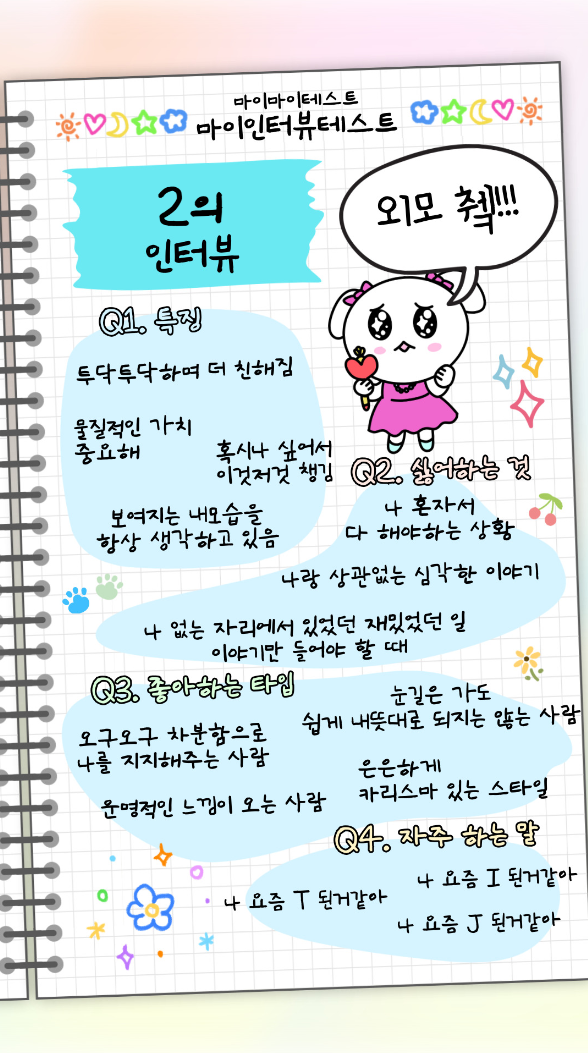 마이마이테스트
마이인터뷰테스트
2의
인터뷰
외모 췍!!!
Q1. 특징
투닥투닥하며 더 친해짐
물질적인 가치
중요해
혹시나 싶어서
이것저것 챙김
보여지는 내모습을
항상 생각하고 있음
Q2. 싫어하는 것
나 혼자서
다 해야하는 상황
나랑 상관없는 심각한 이야기
나 없는 자리에서 있었던 재밌었던 일
이야기만 들어야 할 때
Q3. 좋아하는 타입
오구오구 차분함으로
나를 지지해주는 사람
눈길은 가도
쉽게 내뜻대로 되지는 않는 사람
운명적인 느낌이 오는 사람
은은하게
카리스마 있는 스타일
Q4. 자주 하는 말
나 요즘 T 된거같아
나 요즘 I 된거같아
나 요즘 J 된거같아